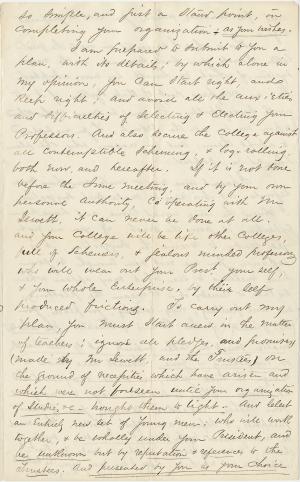 so simple, and just a stand point, on
completing your organization & as you wishes.
I am prepared to submit to you a
plan, with its details; by which alone in
my opinion, you can start right and
keep right; and avoid all the anxieties
and difficulties of selecting & electing your
Professors. And also secure the College against
all contemptible scheming, & log-rolling,
both now, and hereafter. If it is not done
before the June meeting, and by your own
personal authority, Co operating with Mr
Jewett, it can never be done at all.
and your College will be like other Colleges,
full of schemers, & jealous minded professors
who will wear out your Presdt your self,
& your whole enterprise, by their self
produced frictions. To carry out my
plan, you must start anew in the matter
of teachers; ignore all pledges, and promises
(made by Mr Jewett, and the Trustees) on
the ground of necessities which have arisen and
which were not foreseen until your organization
of Studies, &c - brought them to light. And select
an entirely new set of young men; who will work
together, & be wholly under your President, and
be unknown but by reputation & references to the
Trustees. And presented by you as your choice